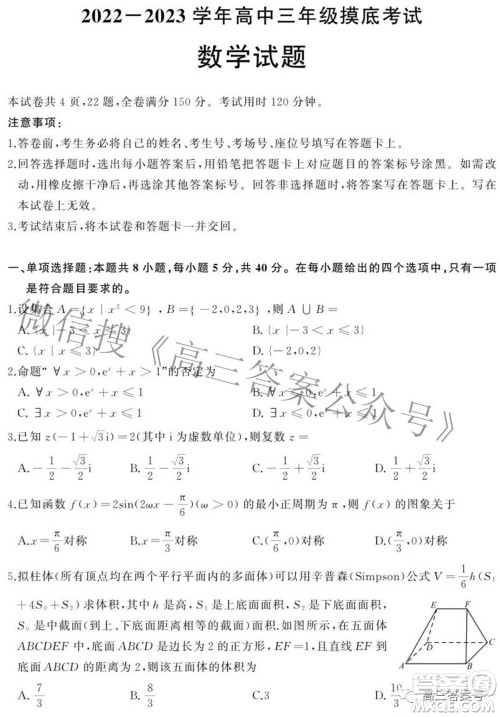 2022-2023学年高中三年级摸底考试
数学试题
本试卷共4页,22题,全卷满分150分。考试用时120分钟。
注意事项:
1.答卷前,考生务必将自己的姓名、考生号、考场号、座位号填写在答题卡上。
2.回答选择题时,选出每小题答案后,用铅笔把答题卡上对应题目的答案标号涂黑。如需改
动,用橡皮擦干净后,再选涂其他答案标号。回答非选择题时,将答案写在答题卡上。写在
本试卷上无效。
3.考试结束后,将本试卷和答题卡一并交回。
一、单项选择题:本题共8小题,每小题5分,共40分。在每小题给出的四个选项中,只有一项
是符合题目要求的。
1.设集合A={x|x²<9},B={-2,0,2,3},则A∪B=
A.{x|-3<x<3} B.{x|-3<x≤3}
C.{x|x≤3} D.{-2,0,2}
2.命题“∀x>0,eˣ+x>1”的否定为
A.∀x>0,eˣ+x≤1 B.∀x≤0,eˣ+x≤1
C.∃x>0,eˣ+x≤1 D.∃x≤0,eˣ+x≤1
3.已知z(-1+√3i)=2(其中i为虚数单位),则复数z=
A.-1/2-√3/2i B.1/2-√3/2i C.-1/2+√3/2i D.1/2+√3/2i
4.已知函数f(x)=2sin(2ωx-π/6)(ω>0)的最小正周期为π,则f(x)的图象关于
A.x=π/6对称 B.x=π/3对称 C.(π/6,0)对称 D.(π/3,0)对称
5.拟柱体(所有顶点均在两个平行平面内的多面体)可以用辛普森(Simpson)公式V=1/6h(S₁
+4S₀+S₂)求体积,其中h是高,S₁是上底面面积,S₂是下底面面积,
S₀是中截面(到上、下底面距离相等的截面)面积.如图所示,在五面体
ABCDEF中,底面ABCD是边长为2的正方形,EF=1,且直线EF到
底面ABCD的距离为2,则该五面体的体积为
A.7/3 B.8/3 C.3 D.10/3
E F
D C
A B
微信搜《高三答案公众号》
高三答案号